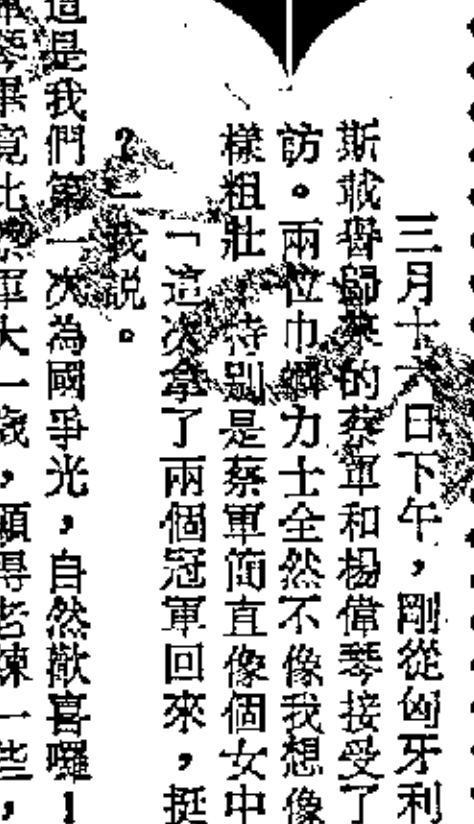 三月十六日下午，剛從匈牙利
斯載譽歸來的蔡軍和楊偉琴接受了
訪。兩位巾幗力士全然不像我想像
樣粗壯 特別是蔡軍簡直像個女中
「這次拿了兩個冠軍回來，挺
？」我説。
這是我們第一次為國爭光，自然歡喜囉！
琴畢竟比蔡軍大一歲，顯得老練一些，